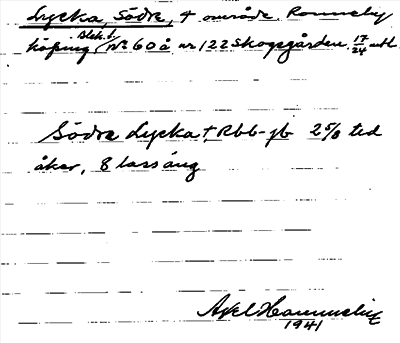 Lycka, Södre, † område. Ronneby
köping, Blek. l. nr 60 å nr 122 Skogsgården. 17/24 mtl
Södre Lycka †, Rbb-jb 2 5/8 td
åker, 8 lass äng
Axel Hammelin
1941